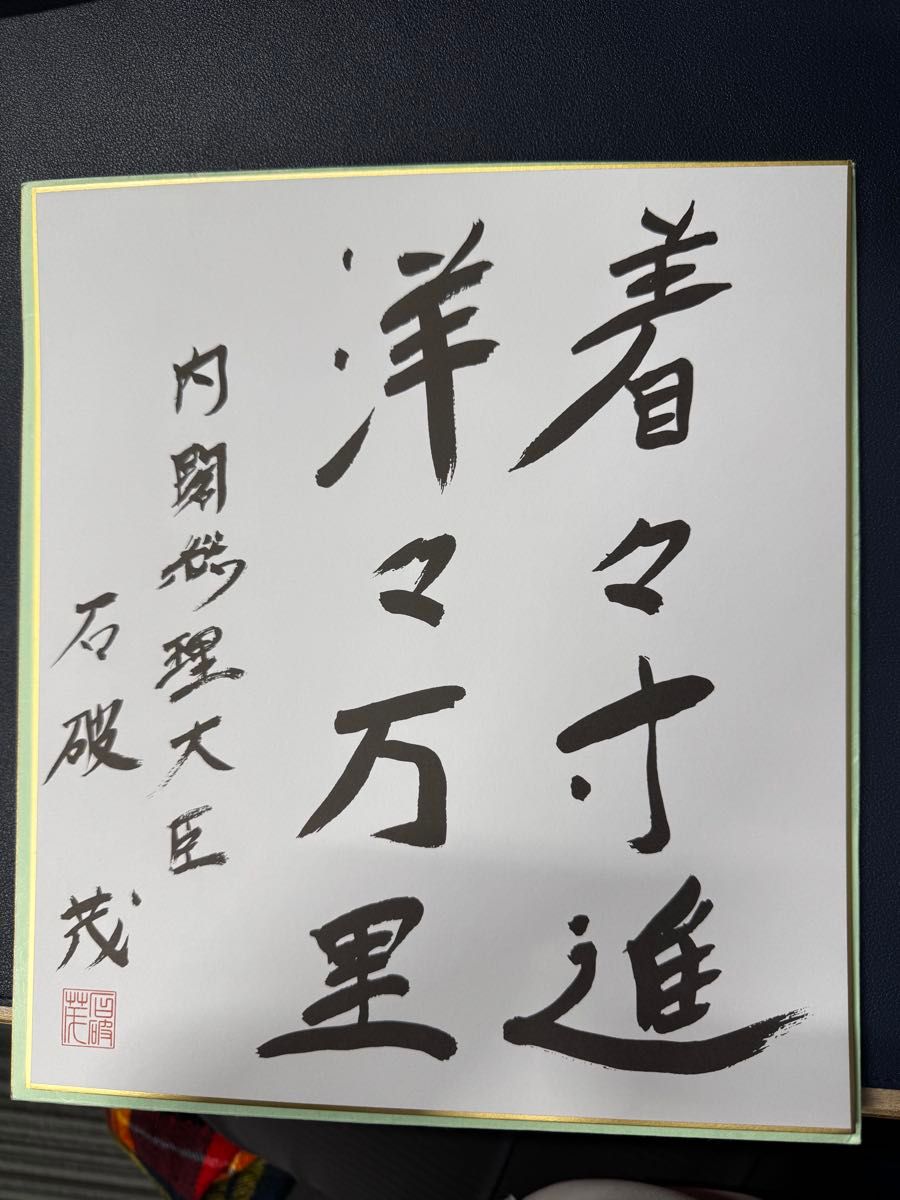 着々寸進
洋々万里
内閣総理大臣
石破茂
石破茂